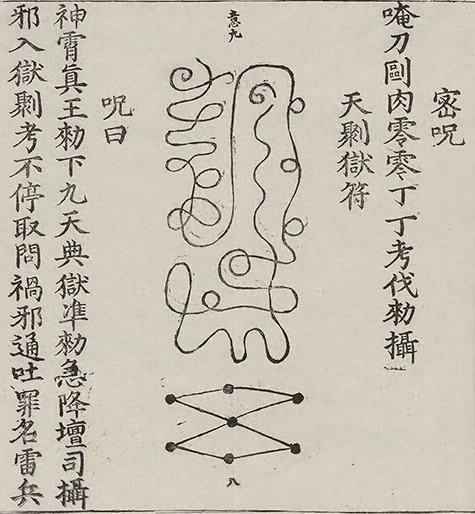 密呪
唵刀剮肉零零丁丁考伐勑攝
天剿獄符
意九
八
呪曰
神霄眞王勑下九天典獄准勑急降壇司攝
邪入獄剿考不停取問禍邪通吐罪名雷兵